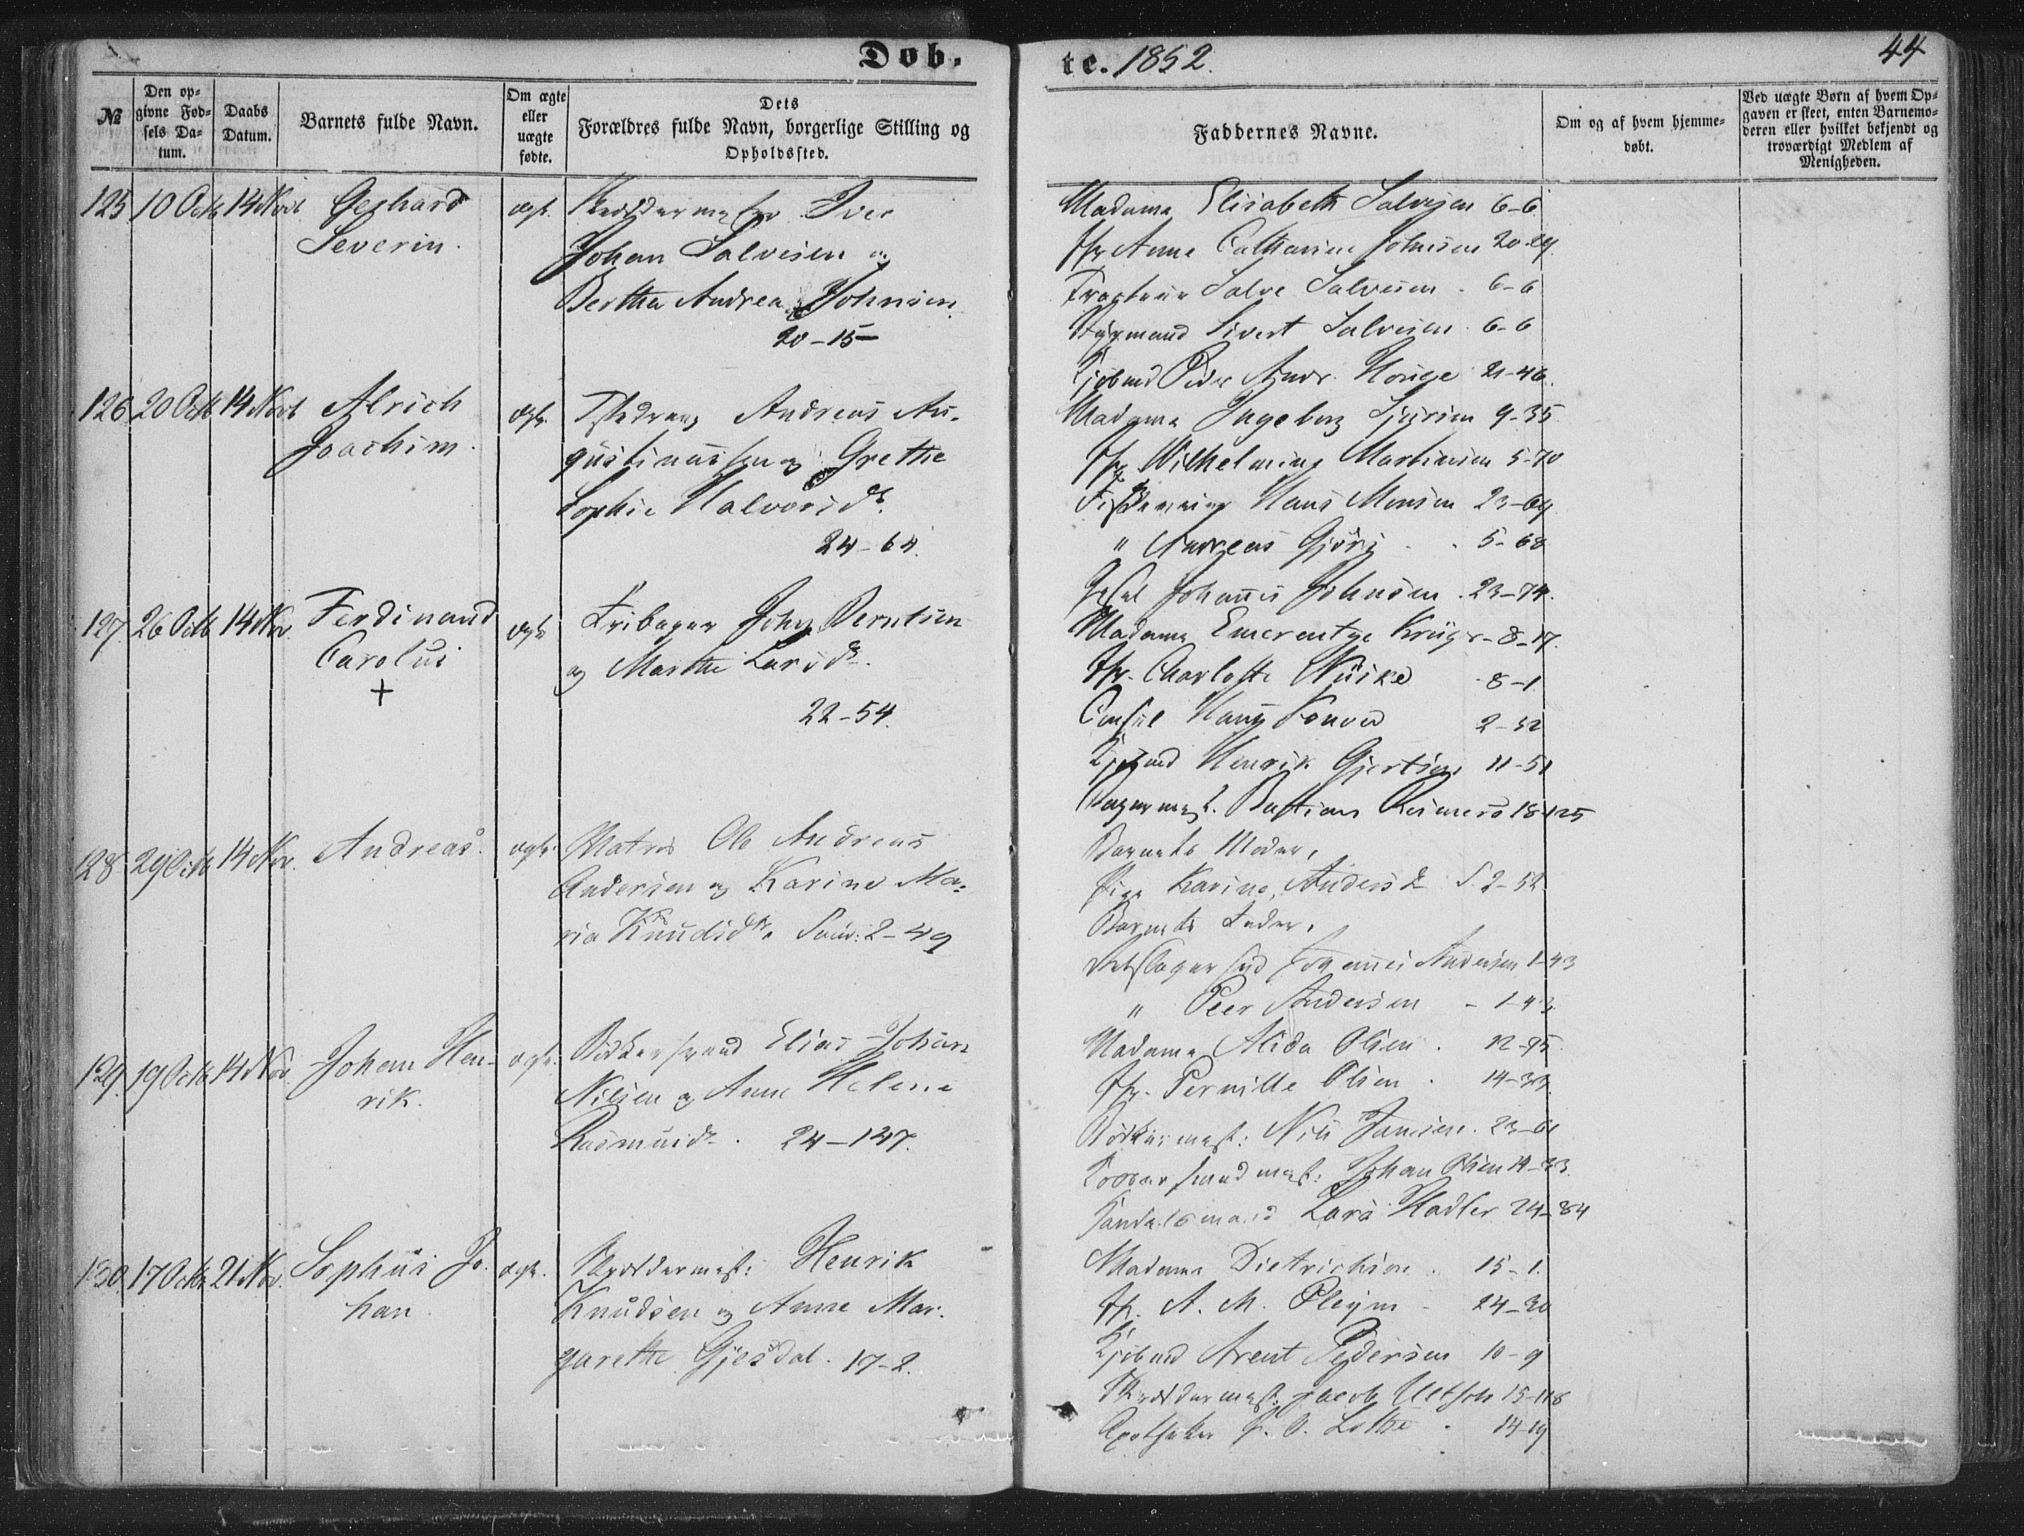 Døb.
te. 1852.
44
№
Den op-
givne Fød-
sels Da-
tum.
Daabs
Datum.
Barnets fulde Navn.
Om ægte
eller
uægte
fødte.
Dets
Forældres fulde Navn, borgerlige Stilling og
Opholdssted.
Faddernes Navne.
Om og af hvem hjemme-
døbt.
Ved uægte Børn af hvem Op-
gaven er skeet, enten Barnemo-
deren eller hvilket bekjendt og
troværdigt Medlem af
Menigheden.
125 10 Octb 14 Novb Gerhard
Severin.
ægt. Skræddermester Iver
Johan Salvesen og
Bertha Andrea Johnsen.
20-15
Madame Elisabeth Salvesen 6-6
Jfr Anne Cathrine Johnsen 20-29
Salve Salvesen. 6-6
Styrmand Sivert Salvesen. 6-6
Kjøbmd Peder Andr. Houge 21-46.
126 20 Octb 14 Novb Alrich
Joachim.
ægt. Andreas Au-
gustinussen og Grethe
Sophie Halvorsdr.
24-64.
Madame Ingeborg 9-35
Jfr Wilhelmine Martinsen 5-70
Hans Monsen 23-69
" Andreas Gjörg . . 5-68
Johannes Johnsen. 23-74.
127. 26 Octb 14 Nov. Ferdinand
Carolus
+
ægt. Johan Berntsen
og Marthe Larsdr.
22-54.
Madame Emerentze Krüger - 8-17.
Jfr. Charlotte 8-1
Consul Konow 2-32
Kjøbmd Henrik Gjertsen 11-51
Bagermest. Bastian Reimers 18-125
128 29 Octb 14 Nov. Andreas.
ægt. Matros Ole Andreas
Andersen og Karine Ma-
ria Knudsdr. Sandv: 2-49
Barnets Moder,
Pige Karine Andersdr S. 2-52
Barnets Fader,
Johannes Andersen 1-43
" Peer Andersen - 1-43
129. 19 Octb 14 Nov. Johan Hen-
rik.
ægt. Bødkersvend Elias Johan
Nilsen og Anne Helene
Rasmusdr. 24-147.
Madame Alida Olsen . 12-95.
Jfr. Pernille Olsen . 14-33.
Bødkermest: Nils Jansen. 23-61
Johan Olsen 14-33.
Handelsmand Lars 24-84
130. 17 Octb 21 Nov. Sophus Jo-
han.
ægt. Skræddermest: Henrik
Knudsen og Anne Mar-
garethe Gjesdal. 17-2.
Madame Dietrichson . 15-1.
Jfr. A. M. Pleym - 24-30
Kjøbmd Arent Pedersen 10-9
Skræddermest. Jacob 15-118
Apotheker Lothe . 14-19